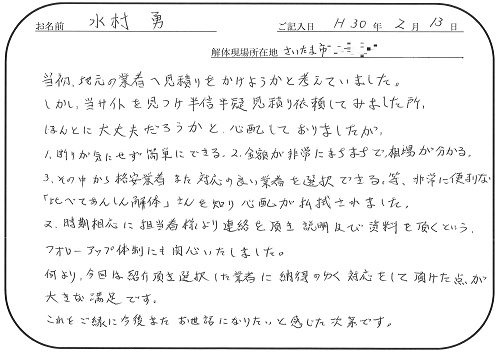 お名前 水村 勇 ご記入日 H30年2月13日
解体現場所在地 さいたま市
当初、地元の業者へ見積りをかけようかと考えていました。
しかし、当サイトを見つけ半信半疑見積り依頼してみました所、
ほんとに大丈夫だろうかと、心配しておりましたが、
1.断りが気にせず簡単にできる。2.金額が非常にまちまちで、相場が分かる。
3.その中から格安業者また対応の良い業者を選択できる。等、非常に便利な
「比べてあんしん解体」さんを知り心配が払拭されました。
又、時期相応に担当者様より連絡を頂き説明及び資料を頂くという、
フォローアップ体制にも関心いたしました。
何より、今回は紹介頂き選択した業者に納得のゆく対応をして頂けた点が
大きな満足です。
これをご縁に今後またお世話になりたいと感じた次第です。